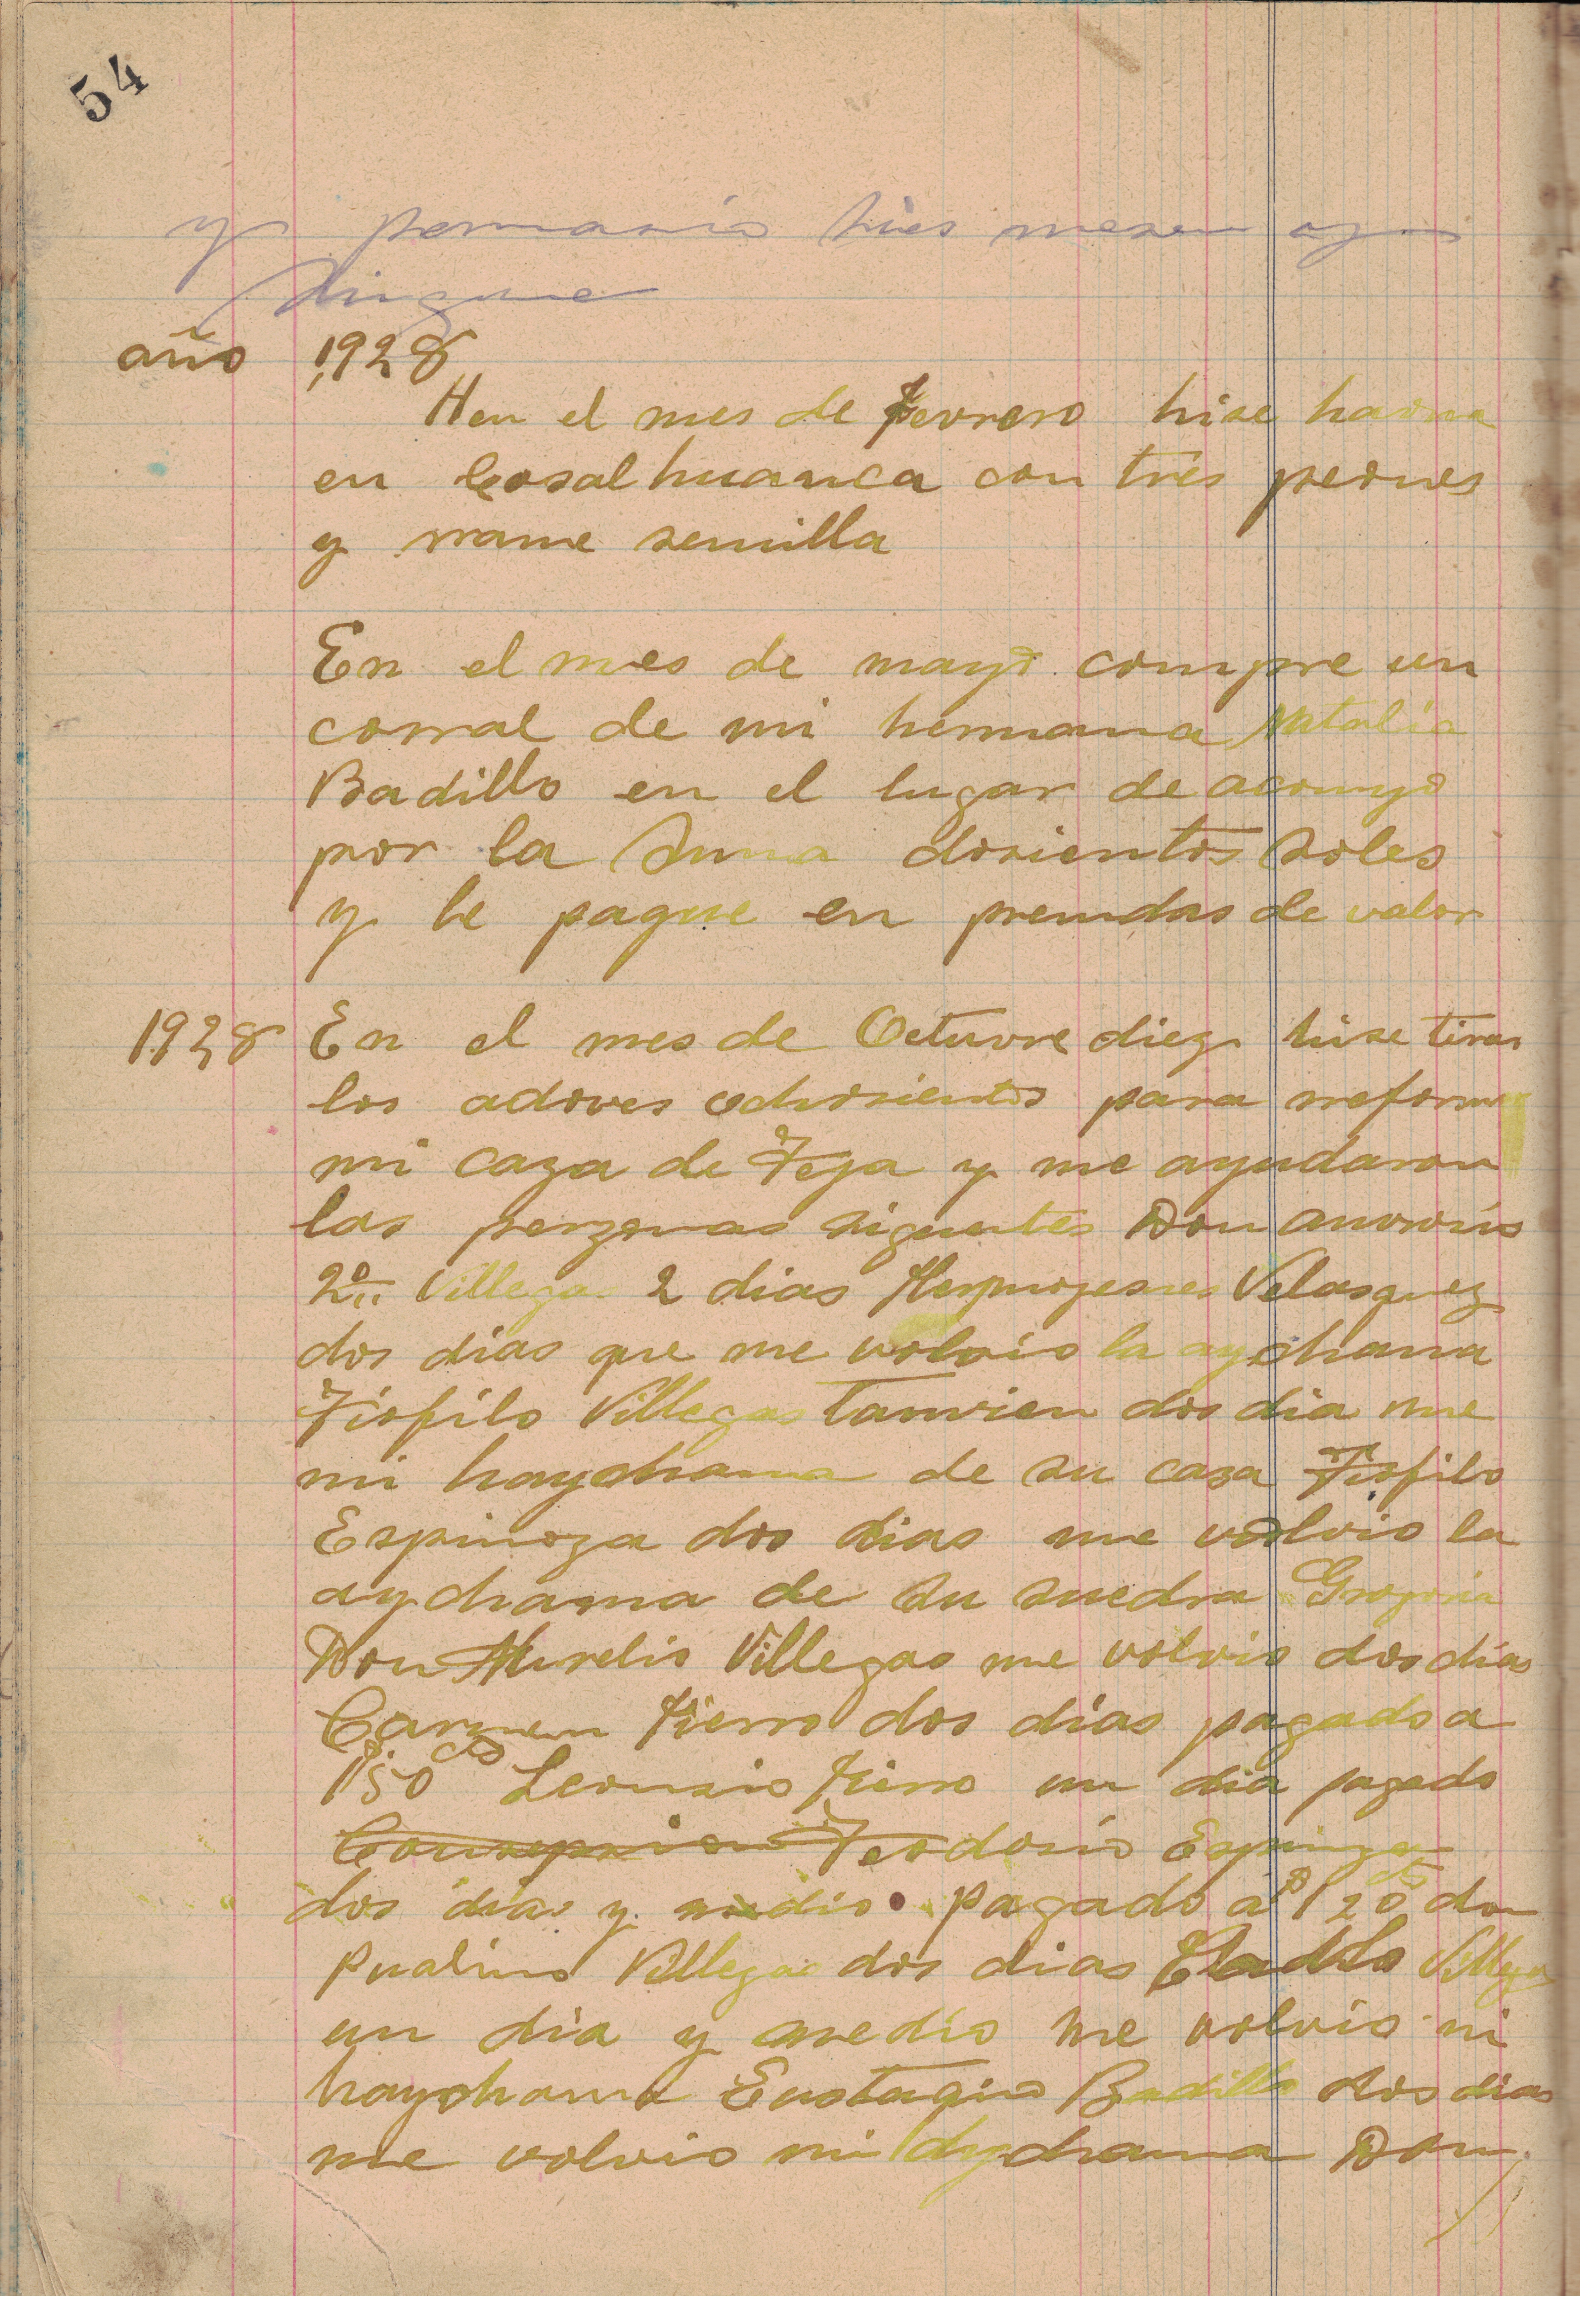 54
y tres mesen
año 1928
Hen el mes de Fevrero hise
en Cosalhuanca con tres peones
y rrame semilla
En el mes de mayo compre un
corral de mi hermana Natalia
Badillo en el lugar de acomyo
por la Suma dosientos soles
y le pague en prendas de valor
1928 En el mes de Octuvre diez hise tirar
los adoves ochosientos para rreformar
mi caza de Teja y me ayudaron
las perzonas siguentes Don
2º Villegas 2 dias Velasquez
dos dias que me volvio la aychama
Tiofilo Villegas tamvien dos dia me
mi haychama de su casa Tiofilo
Espinoza dos dias me volvio la
aychama de su suedra Grogoria
Don Aurelio Villegas me volvio dos dias
Carmen Fierro dos dias pagado a
1,50 Leonsio Fierro un dia pagado
Teodorio Espinoza
dos dias y medio pagado a 1 20 don
Pualino Villegas dos dias Eladio Villegas
un dia y medio me volvio mi
haychama Eustaqio Badillo dos dias
me volvio mi aychama Don